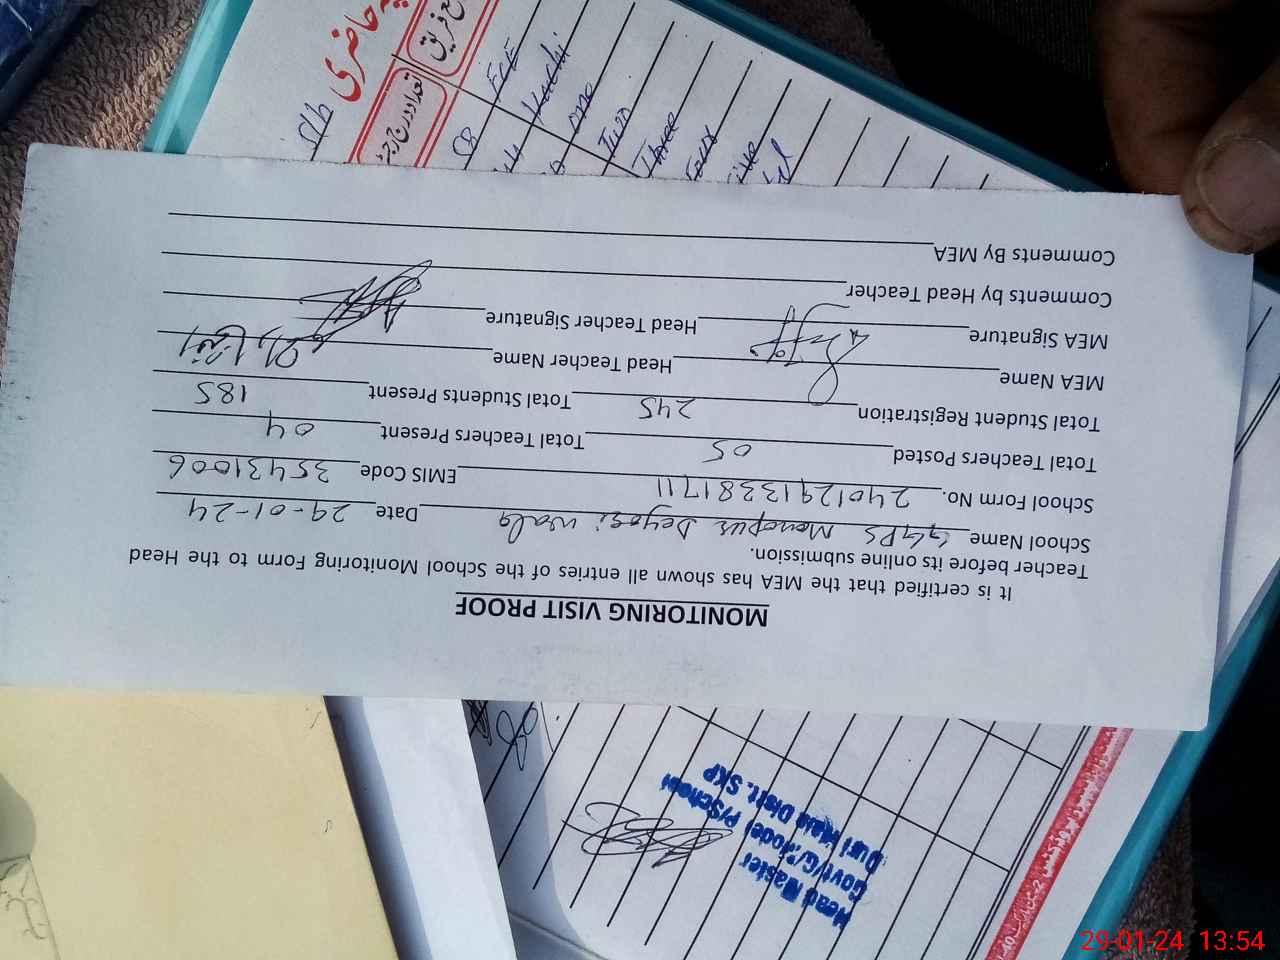 MONITORING VISIT PROOF
It is certified that the MEA has shown all entries of the School Monitoring Form to the Head
Teacher before its online submission.
School Name GGPS Manopur Deyosi wala Date 29-01-24
School Form No. 24012913381711 EMIS Code 35431006
Total Teachers Posted 05 Total Teachers Present 04
Total Student Registration 245 Total Students Present 185
MEA Name Head Teacher Name
MEA Signature Head Teacher Signature
Comments by Head Teacher
Comments By MEA
حاضری
تعداد درج رجسٹر
58 ECE
Kachi
one
Two
Three
Four
Five
Head Master
Govt/G/Model P/School
Distt. SKP
29-01-24 13:54